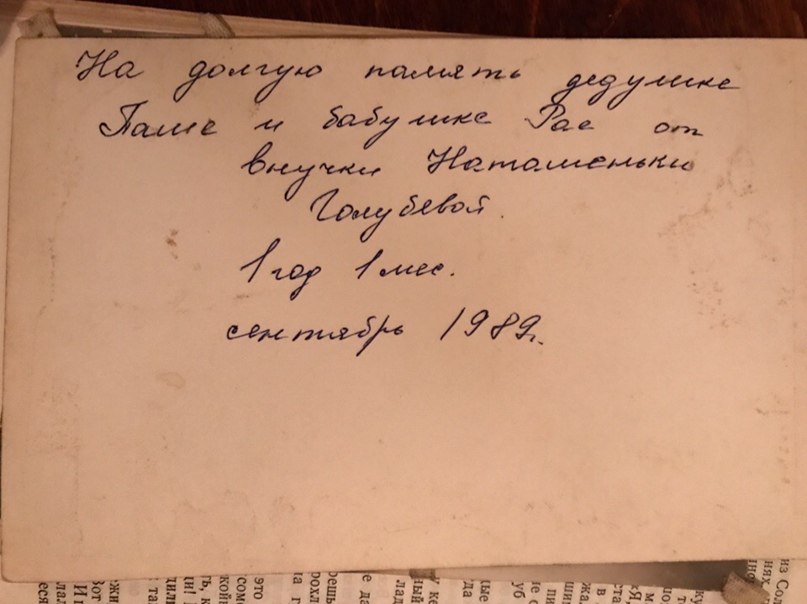 На долгую память дедушке
Паше и бабушке Рае от
внучки Наташеньки
Голубевой.
1 год 1 мес.
сентябрь 1989г.